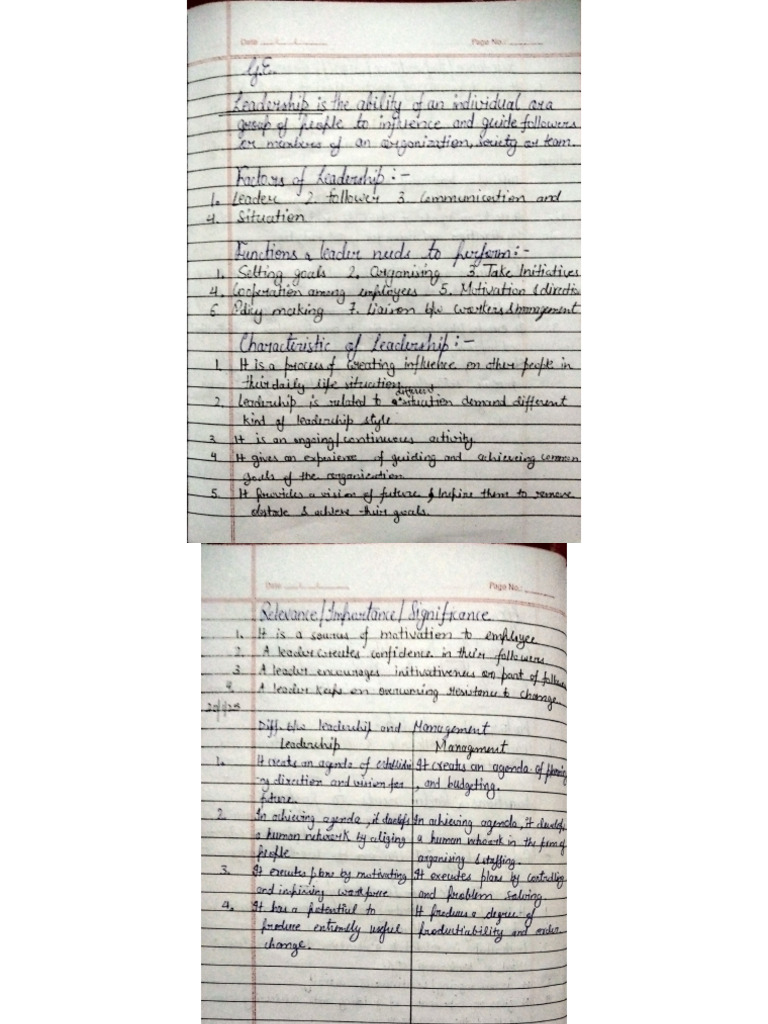 Date
Page No.
G.E.
Leadership is the ability of an individual or a
group of people to influence and guide followers
or members of an organization, society or team.
Factors of Leadership :-
1. Leader 2. follower 3. Communication and
4. Situation
Functions a leader needs to perform :-
1. Setting goals 2. Organising 3. Take Initiatives
4. Cooperation among employees 5. Motivation & directio
6 Policy making 7. Liaison b/w workers & management
Characteristic of Leadership :-
1. It is a process of creating influence on other people in
their daily life situation
2. Leadership is related to different situation demand different
kind of leadership style.
3 It is an ongoing/continuous activity.
4 It gives an experience of guiding and achieveing common
goals of the organisation
5. It provides a vision of future & Inspire them to remove
obstacle & achieve their goals.
Date
Page No.:
Relevance/Importance/Significance
1. It is a source of motivation to employee
2. A leader creates confidence in their followers
3 A leader encourages initivativeness on part of follow
4. A leader keeps on overcoming resistance to change.
Diff. b/w leadership and Management
Leadership Management
1. It creats an agenda of establishi It creats an agenda of planning
ng direction and vision for , and budgeting.
future.
2. In achieving agenda, it develops In achieving agenda, it develops
a human network by aliging a human network in the form of
people organising & staffing.
3. It executes plans by motivating It executes plans by controlling
and inspiring workforce and problem solving.
4. It has a potential to It produces a degree of
produce extremely useful productiability and order.
change.